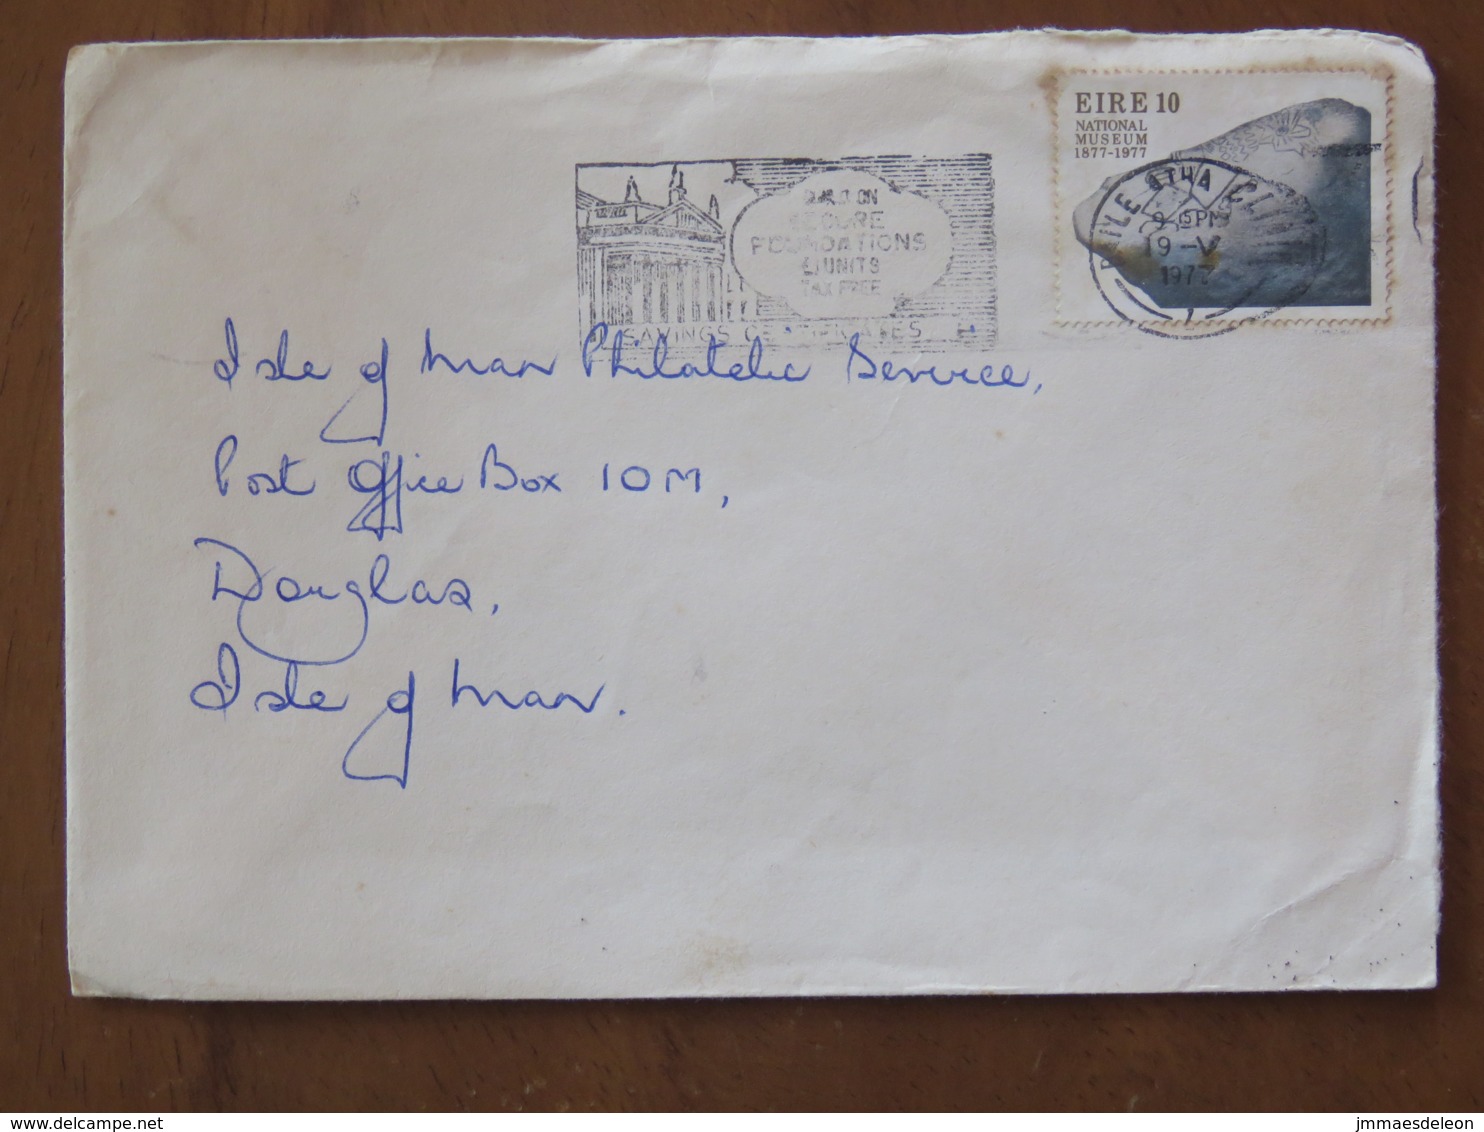 EIRE 10
NATIONAL
MUSEUM
1877-1977
BAILE ÁTHA CL
9 15PM
19 -V
1977
1
BUILD ON
SECURE
FOUNDATIONS
£1 UNITS
TAX FREE
SAVINGS CERTIFICATES
Isle of Man Philatelic Service,
Post Office Box 10M,
Douglas,
Isle of Man.
www.delcampe.net
jmmaesdeleon